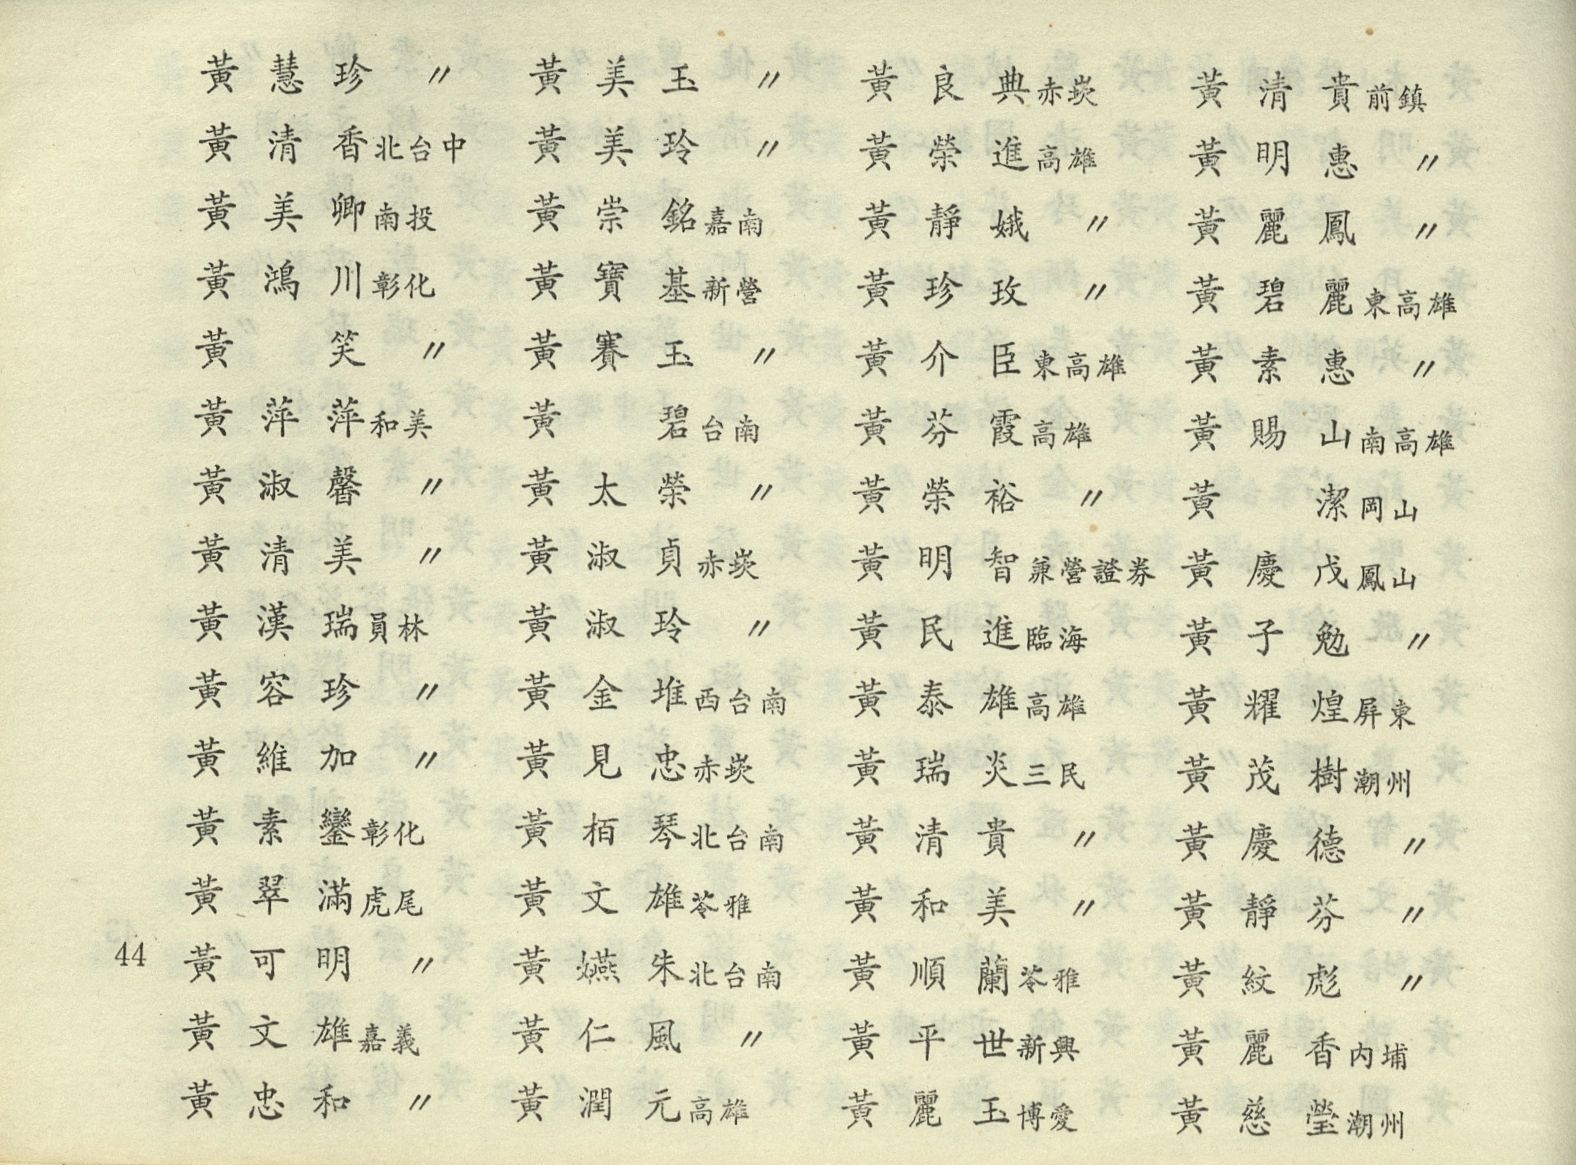 黃慧珍 〃
黃清香北台中
黃美卿南投
黃鴻川彰化
黃 笑 〃
黃萍萍和美
黃淑馨 〃
黃清美 〃
黃漢瑞員林
黃容珍 〃
黃維加 〃
黃素鑾彰化
黃翠滿虎尾
黃可明 〃
黃文雄嘉義
黃忠和 〃
黃美玉 〃
黃美玲 〃
黃崇銘嘉南
黃寶基新營
黃賽玉 〃
黃 碧台南
黃太榮 〃
黃淑貞赤崁
黃淑玲 〃
黃金堆西台南
黃見忠赤崁
黃栢琴北台南
黃文雄苓雅
黃嬿朱北台南
黃仁風 〃
黃潤元高雄
黃良典赤崁
黃榮進高雄
黃靜娥 〃
黃珍玫 〃
黃介臣東高雄
黃芬霞高雄
黃榮裕 〃
黃明智兼營證券
黃民進臨海
黃泰雄高雄
黃瑞炎三民
黃清貴 〃
黃和美 〃
黃順蘭苓雅
黃平世新興
黃麗玉博愛
黃清貴前鎮
黃明惠 〃
黃麗鳳 〃
黃碧麗東高雄
黃素惠 〃
黃賜山南高雄
黃 潔岡山
黃慶戊鳳山
黃子勉 〃
黃耀煌屏東
黃茂樹潮州
黃慶德 〃
黃靜芬 〃
黃紋彪 〃
黃麗香內埔
黃慈瑩潮州
44